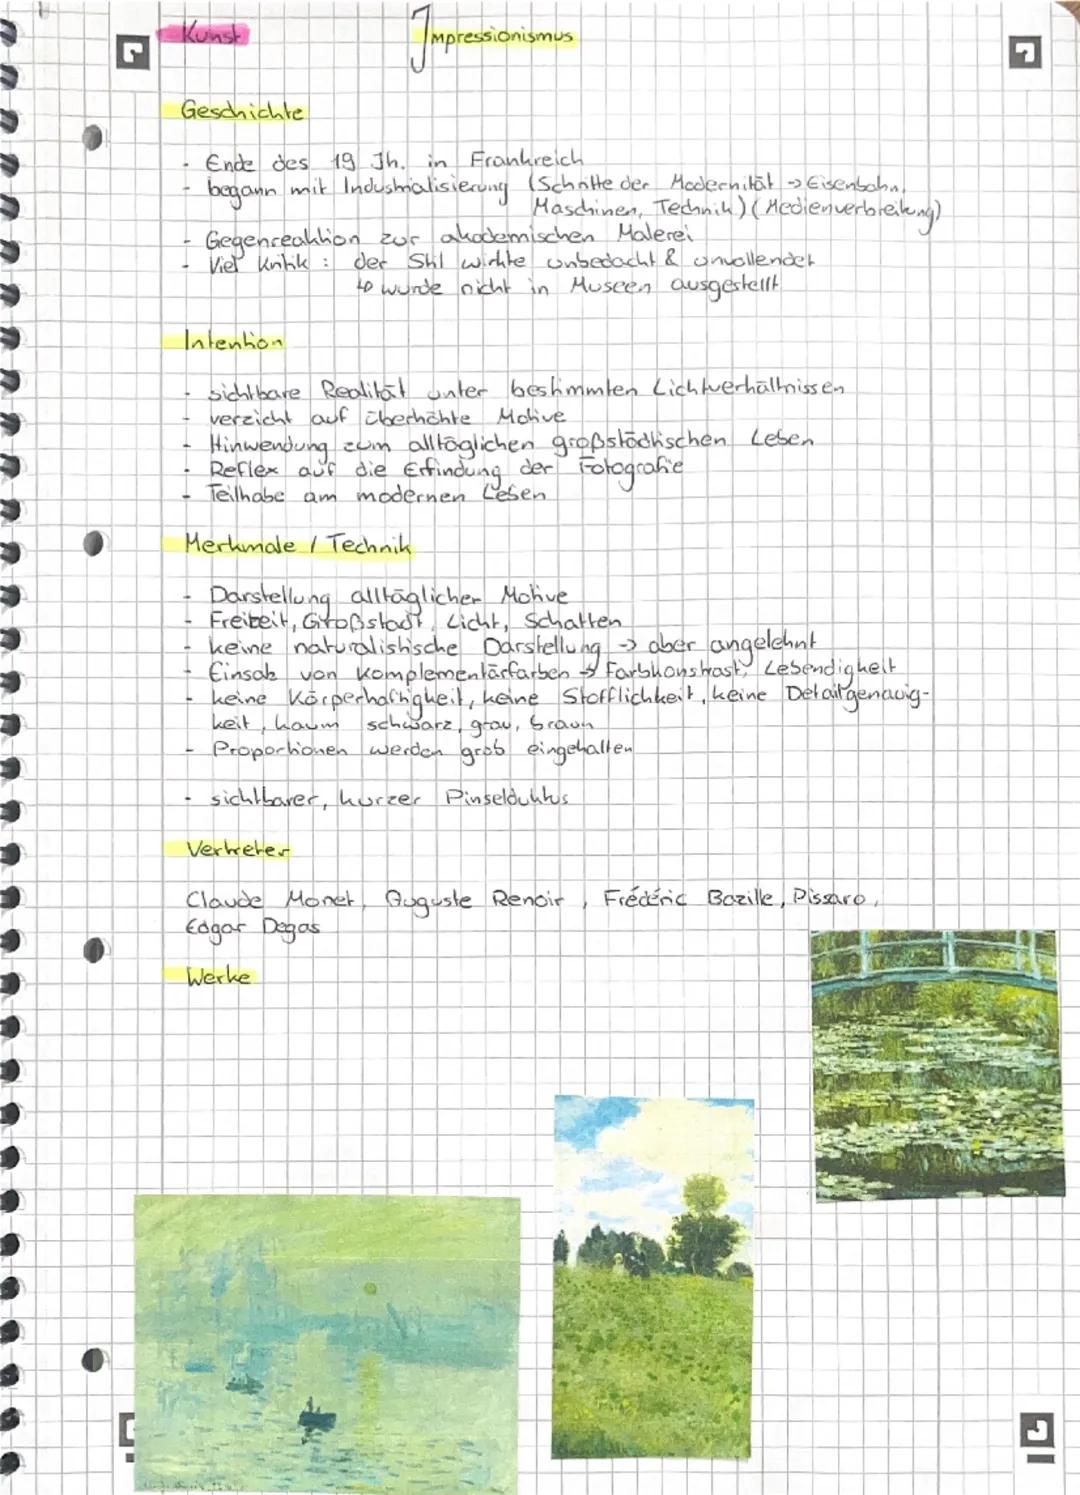 Kunst
Impressionismus
Geschichte
- Ende des 19 Jh. in Frankreich
- begann mit Industrialisierung (Schritte der Modernität → Eisenbahn,
Maschinen, Technik) (Medienverbreitung)
- Gegenreaktion zur akademischen Malerei
- Viel Kritik : der Stil wirkte unbedacht & unvollendet
↳ wurde nicht in Museen ausgestellt
Intention
- sichtbare Realität unter bestimmten Lichtverhältnissen
- verzicht auf überhöhte Motive
- Hinwendung zum alltäglichen großstädtischen Leben
- Reflex auf die Erfindung der Fotografie
- Teilhabe am modernen Leben
Merkmale / Technik
- Darstellung alltäglicher Motive
- Freizeit, Großstadt, Licht, Schatten
- keine naturalistische Darstellung → aber angelehnt
- Einsatz von Komplementärfarben → Farbkonstrast, Lebendigkeit
- keine Körperhaftigkeit, keine Stofflichkeit, keine Detailgenauig-
keit, kaum schwarz, grau, braun
- Proportionen werden grob eingehalten
- sichtbarer, kurzer Pinselduktus
Vertreter
Claude Monet, Auguste Renoir, Frédéric Bazille, Pissaro,
Edgar Degas
Werke